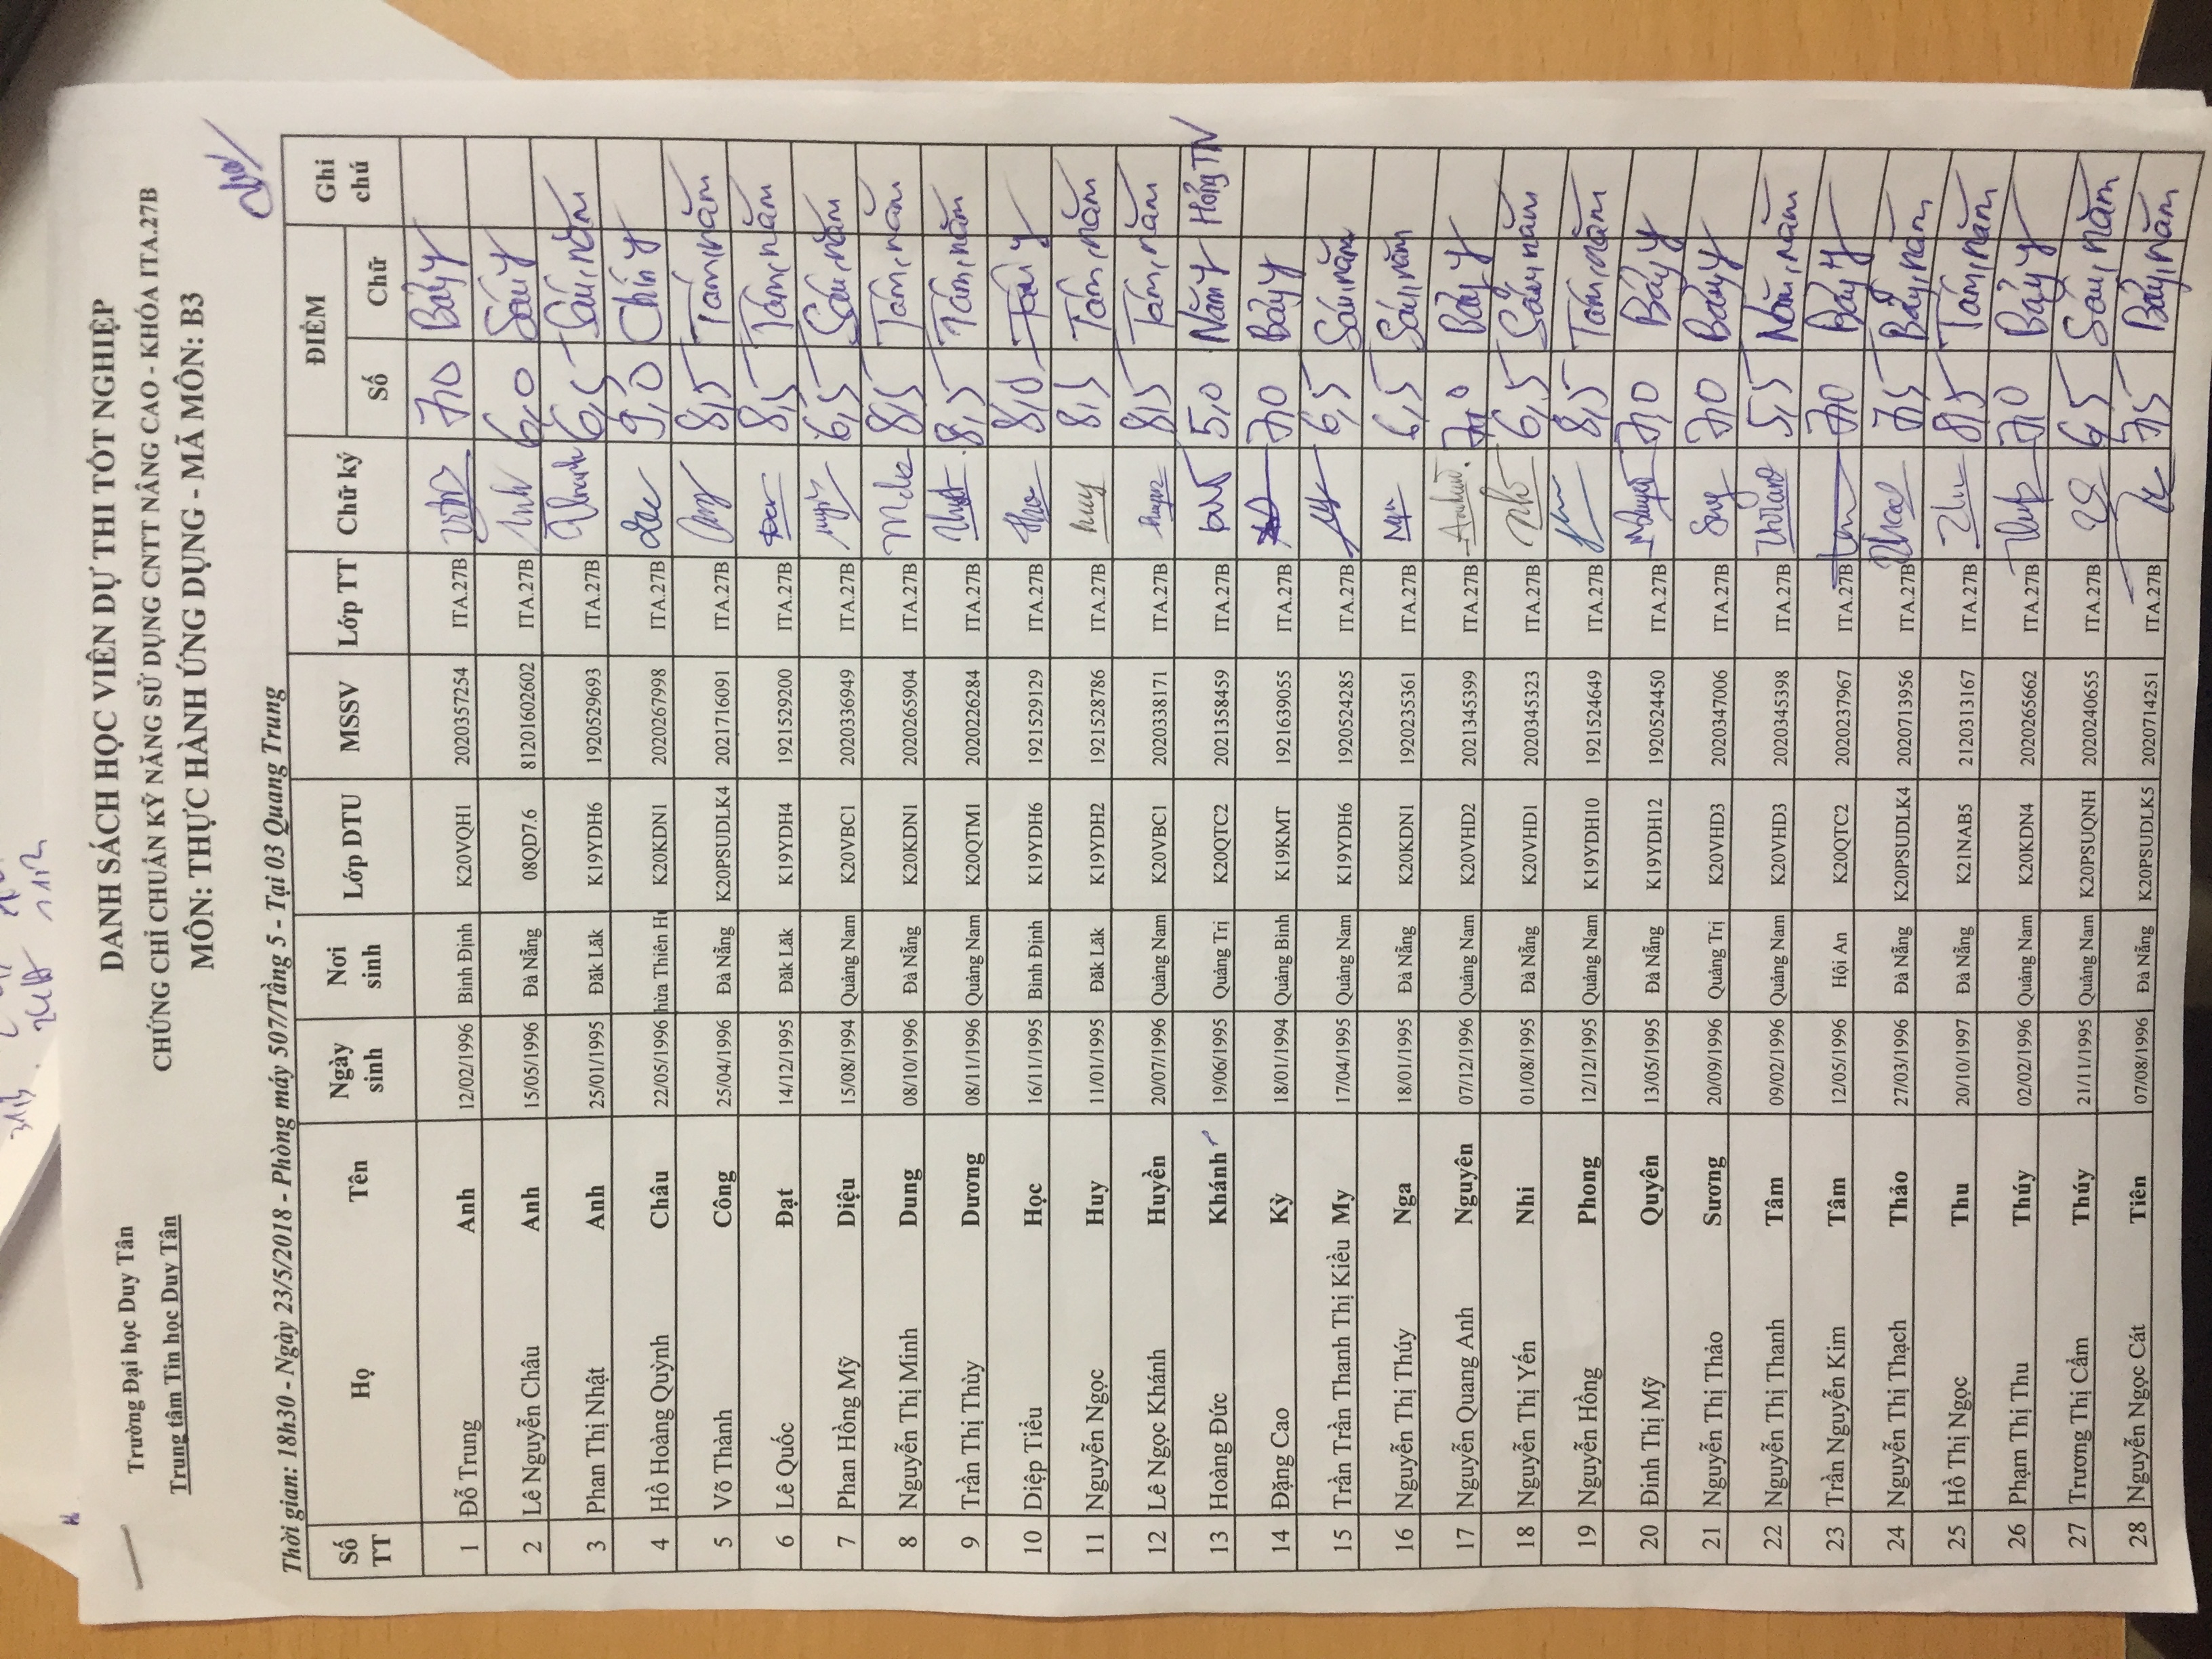 Trường Đại học Duy Tân
Trung tâm Tin học Duy Tân
DANH SÁCH HỌC VIÊN DỰ THI TỐT NGHIỆP
CHỨNG CHỈ CHUẨN KỸ NĂNG SỬ DỤNG CNTT NÂNG CAO - KHÓA ITA.27B
MÔN: THỰC HÀNH ỨNG DỤNG - MÃ MÔN: B3
Thời gian: 18h30 - Ngày 23/5/2018 - Phòng máy 507/Tầng 5 - Tại 03 Quang Trung
Số TT Họ Tên Ngày sinh Nơi sinh Lớp DTU MSSV Lớp TT Chữ ký ĐIỂM Số Chữ Ghi chú
1 Đỗ Trung Anh 12/02/1996 Bình Định K20VQH1 2020357254 ITA.27B 7,0 Bảy
2 Lê Nguyễn Châu Anh 15/05/1996 Đà Nẵng 08QD7.6 81201602602 ITA.27B Anh 6,0 Sáu
3 Phan Thị Nhật Anh 25/01/1995 Đăk Lăk K19YDH6 1920529693 ITA.27B 6,5 Sáu, năm
4 Hồ Hoàng Quỳnh Châu 22/05/1996 hừa Thiên H K20KDN1 2020267998 ITA.27B 9,0 Chín
5 Võ Thành Công 25/04/1996 Đà Nẵng K20PSUDLK4 2021716091 ITA.27B 8,5 Tám, năm
6 Lê Quốc Đạt 14/12/1995 Đăk Lăk K19YDH4 1921529200 ITA.27B 8,5 Tám, năm
7 Phan Hồng Mỹ Diệu 15/08/1994 Quảng Nam K20VBC1 2020336949 ITA.27B 6,5 Sáu, năm
8 Nguyễn Thị Minh Dung 08/10/1996 Đà Nẵng K20KDN1 2020265904 ITA.27B 8,5 Tám, năm
9 Trần Thị Thùy Dương 08/11/1996 Quảng Nam K20QTM1 2020226284 ITA.27B 8,5 Tám, năm
10 Diệp Tiểu Học 16/11/1995 Bình Định K19YDH6 1921529129 ITA.27B 8,0 Tám
11 Nguyễn Ngọc Huy 11/01/1995 Đăk Lăk K19YDH2 1921528786 ITA.27B huy 8,5 Tám, năm
12 Lê Ngọc Khánh Huyền 20/07/1996 Quảng Nam K20VBC1 2020338171 ITA.27B 8,5 Tám, năm
13 Hoàng Đức Khánh 19/06/1995 Quảng Trị K20QTC2 2021358459 ITA.27B 5,0 Năm Hỏng TN
14 Đặng Cao Kỳ 18/01/1994 Quảng Bình K19KMT 1921639055 ITA.27B 7,0 Bảy
15 Trần Trần Thanh Thị Kiều My 17/04/1995 Quảng Nam K19YDH6 1920524285 ITA.27B 6,5 Sáu, năm
16 Nguyễn Thị Thúy Nga 18/01/1995 Đà Nẵng K20KDN1 1920235361 ITA.27B 6,5 Sáu, năm
17 Nguyễn Quang Anh Nguyên 07/12/1996 Quảng Nam K20VHD2 2021345399 ITA.27B 7,0 Bảy
18 Nguyễn Thị Yến Nhi 01/08/1995 Đà Nẵng K20VHD1 2020345323 ITA.27B 6,5 Sáu, năm
19 Nguyễn Hồng Phong 12/12/1995 Quảng Nam K19YDH10 1921524649 ITA.27B 8,5 Tám, năm
20 Đinh Thị Mỹ Quyên 13/05/1995 Đà Nẵng K19YDH12 1920524450 ITA.27B 7,0 Bảy
21 Nguyễn Thị Thảo Sương 20/09/1996 Quảng Trị K20VHD3 2020347006 ITA.27B 7,0 Bảy
22 Nguyễn Thị Thanh Tâm 09/02/1996 Quảng Nam K20VHD3 2020345398 ITA.27B 5,5 Năm, năm
23 Trần Nguyễn Kim Tâm 12/05/1996 Hội An K20QTC2 2020237967 ITA.27B 7,0 Bảy
24 Nguyễn Thị Thạch Thảo 27/03/1996 Đà Nẵng K20PSUDLK4 2020713956 ITA.27B 7,5 Bảy, năm
25 Hồ Thị Ngọc Thu 20/10/1997 Đà Nẵng K21NAB5 2120313167 ITA.27B 8,5 Tám, năm
26 Phạm Thị Thu Thúy 02/02/1996 Quảng Nam K20KDN4 2020265662 ITA.27B 7,0 Bảy
27 Trương Thị Cẩm Thúy 21/11/1995 Quảng Nam K20PSUQNH 2020240655 ITA.27B 6,5 Sáu, năm
28 Nguyễn Ngọc Cát Tiên 07/08/1996 Đà Nẵng K20PSUDLK5 2020714251 ITA.27B 7,5 Bảy, năm